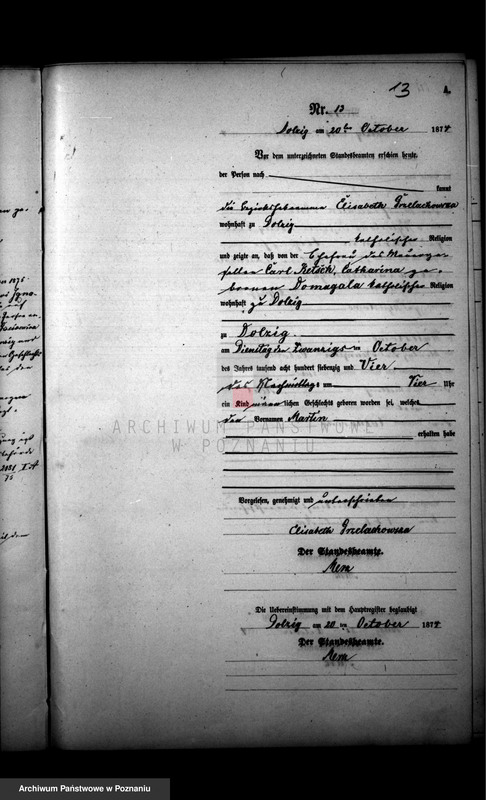 13
A.
Nr. 13
Dolzig am 20ten October 1874
Vor dem unterzeichneten Standesbeamten erschien heute,
der Person nach
kannt
die Bezirkshebamme Elisabeth Grzelachowska
wohnhaft zu Dolzig
katholischer Religion
und zeigte an, daß von der Ehefrau des Maurerge-
sellen Carl Catharina ge-
borenen Domagala katholischer Religion
wohnhaft zu Dolzig
zu Dolzig
am Dienstag den Zwanzigsten October
des Jahres tausend acht hundert siebenzig und Vier
des Nachmittags um Vier Uhr
ein Kind männlichen Geschlechts geboren worden sei, welches
den Vornamen Martin
erhalten habe
ARCHIWUM PAŃSTWOWE
W POZNANIU
Vorgelesen, genehmigt und unterschrieben
Elisabeth Grzelachowska
Der Standesbeamte.
Die Uebereinstimmung mit dem Hauptregister beglaubigt
Dolzig am 20ten October 1874
Der Standesbeamte.
Archiwum Państwowe w Poznaniu